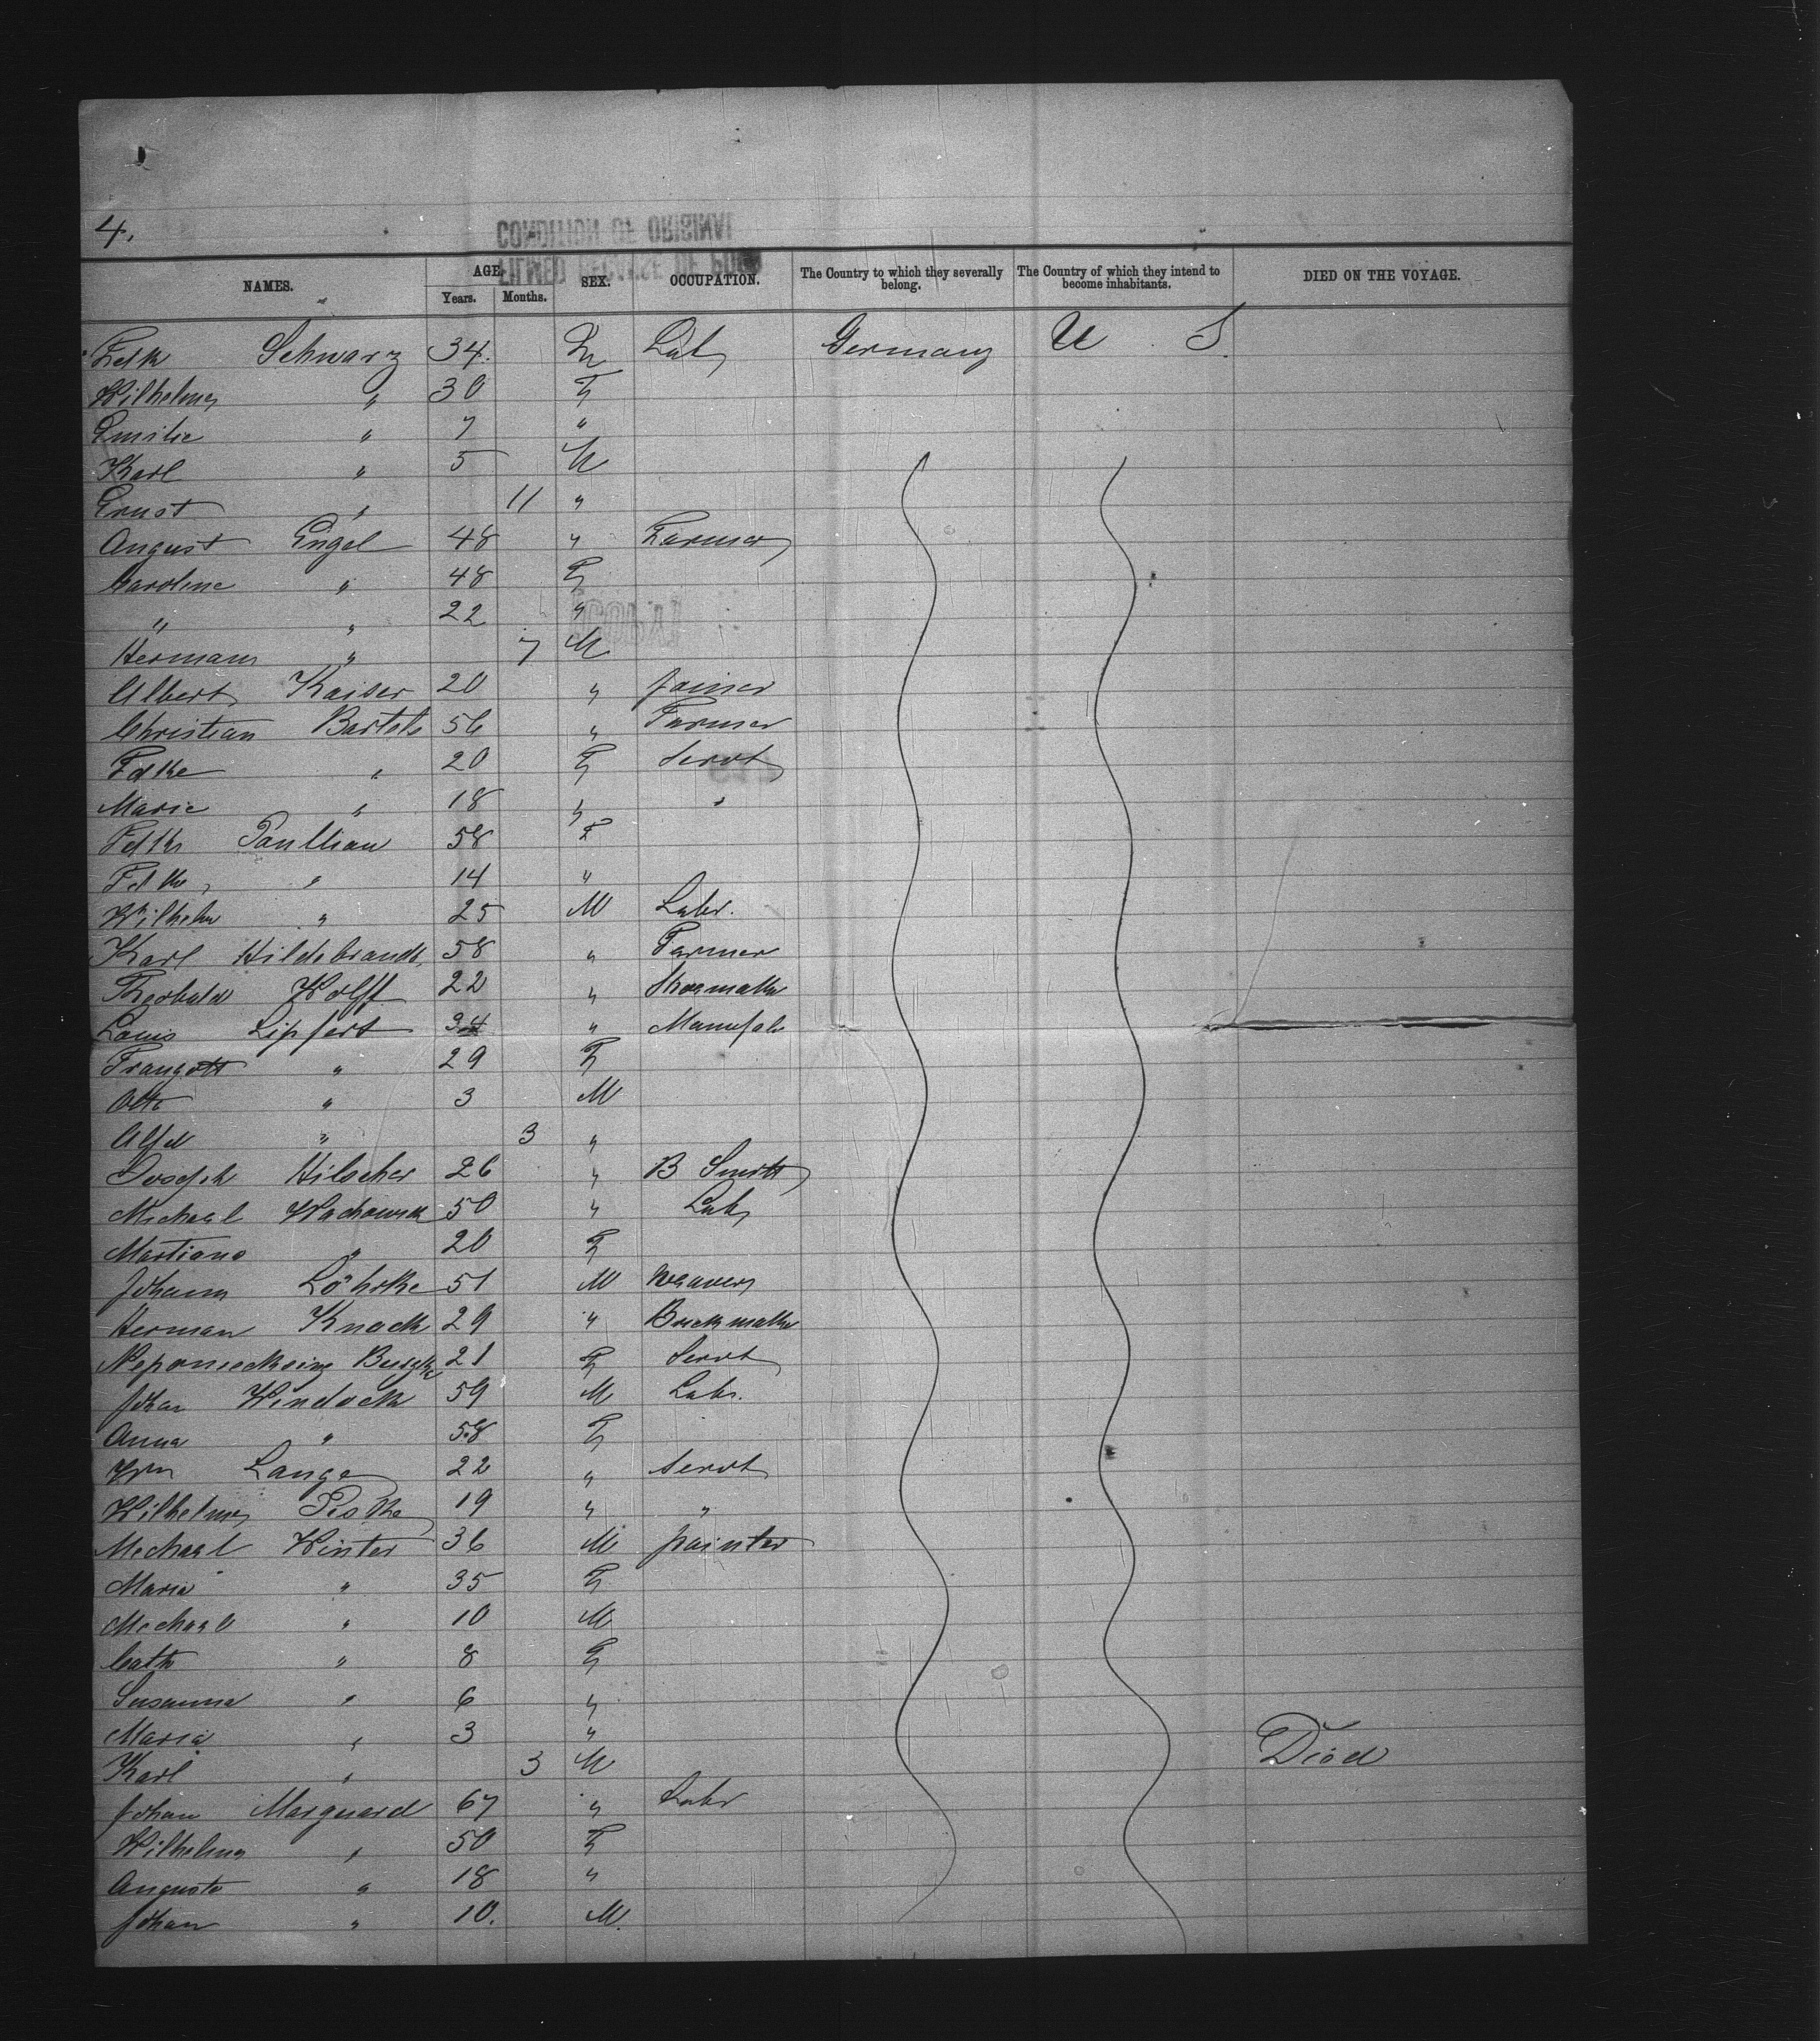 4.
CONDITION OF ORIGINAL
NAMES. AGE. Years. Months. SEX. OCCUPATION. The Country to which they severally belong. The Country of which they intend to become inhabitants. DIED ON THE VOYAGE.
Fdk Schwarz 34. M Lab Germany U S
Wilhelma " 30 F
Emilie " 7 "
Karl " 5 M
Ernst " 11 "
August Engel 48 " Farmer
Caroline " 48 F
" " 22 "
Hermann " 7 M
Albert Kaiser 20 " joiner
Christian Bartels 56 " Farmer
Fdke " 20 F Servt
Marie " 18 " "
Fdke Paullian 58 F
Fdke " 14 "
Wilhelm " 25 M Labr.
Karl Hildebrandt 58 " Farmer
Theobald Wolff 22 " Shoemaker
Louis Lipfert 34 "
Traugott " 29 F
Otto " 3 M
Alfd " 3 "
Joseph Hilscher 26 " B Smith
Michael 50 " Lab
Martiana " 20 F
Johann Löhrke 51 M weaver
Herman Knack 29 " Brickmaker
21 F Servt
Johan Windock 59 M Labr.
Anna " 58 F
Wm Lange 22 " Servt
Wilhelma Peske 19 " "
Michael Winter 36 M painter
Maria " 35 F
Michael " 10 M
Cath " 8 F
Susanna " 6 "
Maria " 3 "
Karl " 3 M Died
Johan Marquard 67 " Labr
Wilhelma " 50 F
Auguste " 18 "
Johan " 10. M.